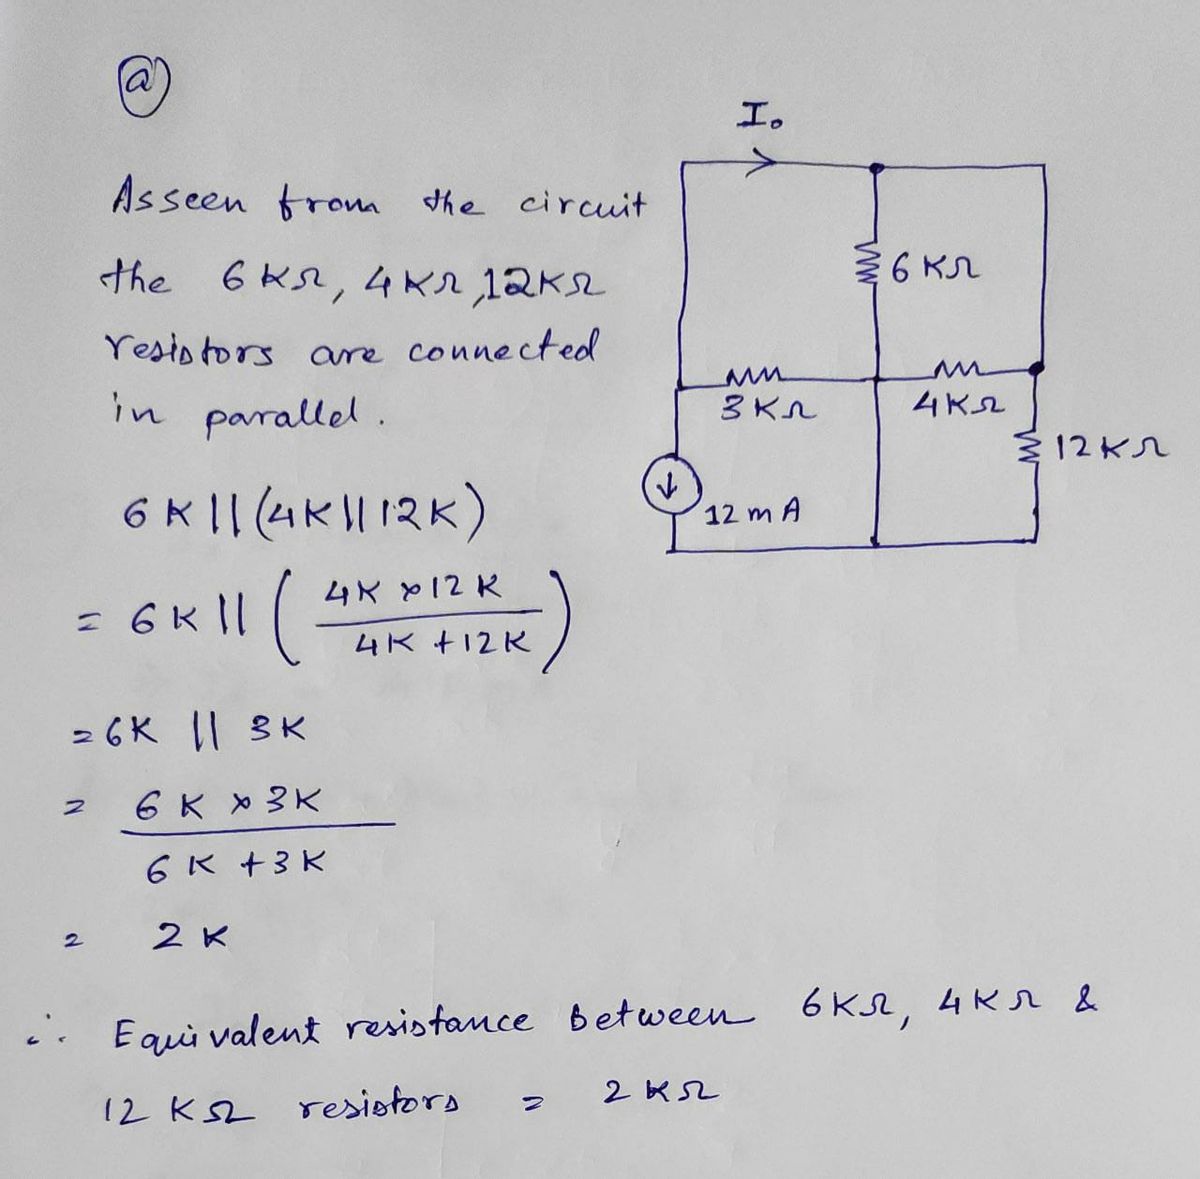 (a)
As seen from the circuit
the 6 KΩ, 4 KΩ, 12KΩ
resistors are connected
in parallel.
I₀
6 KΩ
3 KΩ
4 KΩ
12 KΩ
12 mA
6 K || (4K || 12 K)
= 6 K || ( 4K × 12 K
4K + 12K )
= 6K || 3K
= 6 K × 3K
6 K + 3 K
= 2 K
∴ Equivalent resistance between 6 KΩ, 4 KΩ &
12 KΩ resistors = 2 KΩ